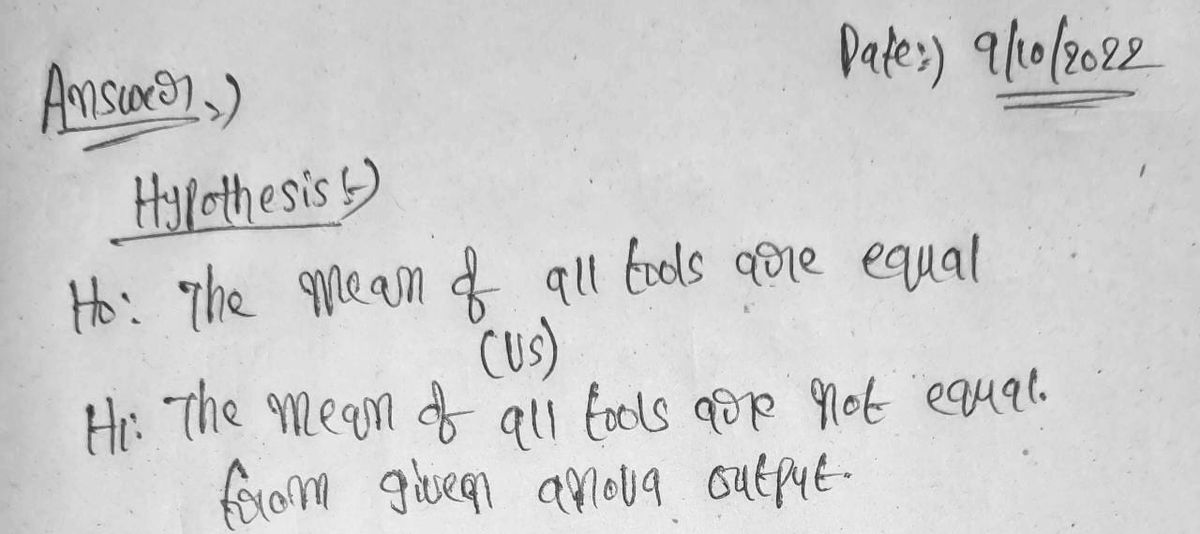 Date:) 9/10/2022
Answer:)
Hypothesis:-)
Ho: The mean of all tools are equal
(Vs)
H1: The mean of all tools are not equal.
from given anova output.